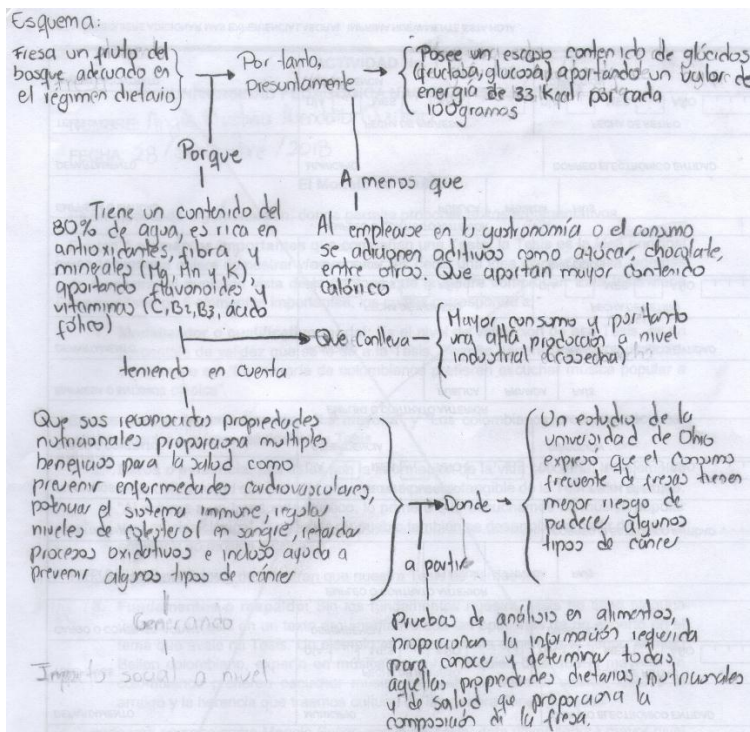 Esquema:
Fresa un fruto del
bosque adecuado en
el régimen dietario
Por tanto,
Presuntamente
Posee un escaso contenido de glúcidos
(fructosa, glucosa) aportando un valor de
energía de 33,1 Kcal por cada
100 gramos
Porque
Tiene un contenido del
80% de agua, es rica en
antioxidantes, fibra y
minerales (Mg, Mn y K),
aportando flavonoides y
vitaminas (C, B2, B3, ácido
fólico)
A menos que
Al emplearse en la gastronomía o el consumo
se adicionen aditivos como azúcar, chocolate,
entre otros. Que aportan mayor contenido
calórico
Que Conlleva
Mayor consumo y por tanto
una alta producción a nivel
industrial (cosecha)
teniendo en cuenta
Que sus reconocidas propiedades
nutricionales proporciona multiples
beneficios para la salud como
prevenir enfermedades cardiovasculares,
potenciar el sistema immune, regular
niveles de colesterol en sangre, retardar
procesos oxidativos e incluso ayuda a
prevenir algunos tipos de cáncer
Donde
Un estudio de la
universidad de Ohio
expresó que el consumo
frecuente de fresas tienen
menor riesgo de
padecer algunos
tipos de cáncer
a partir
Pruebas de análisis de alimentos,
proporcionan la información requerida
para conocer y determinar todas
aquellas propiedades dietarias, nutricionales
y de salud que proporciona la
composición de la fresa.
Generando
Impacto social a nivel